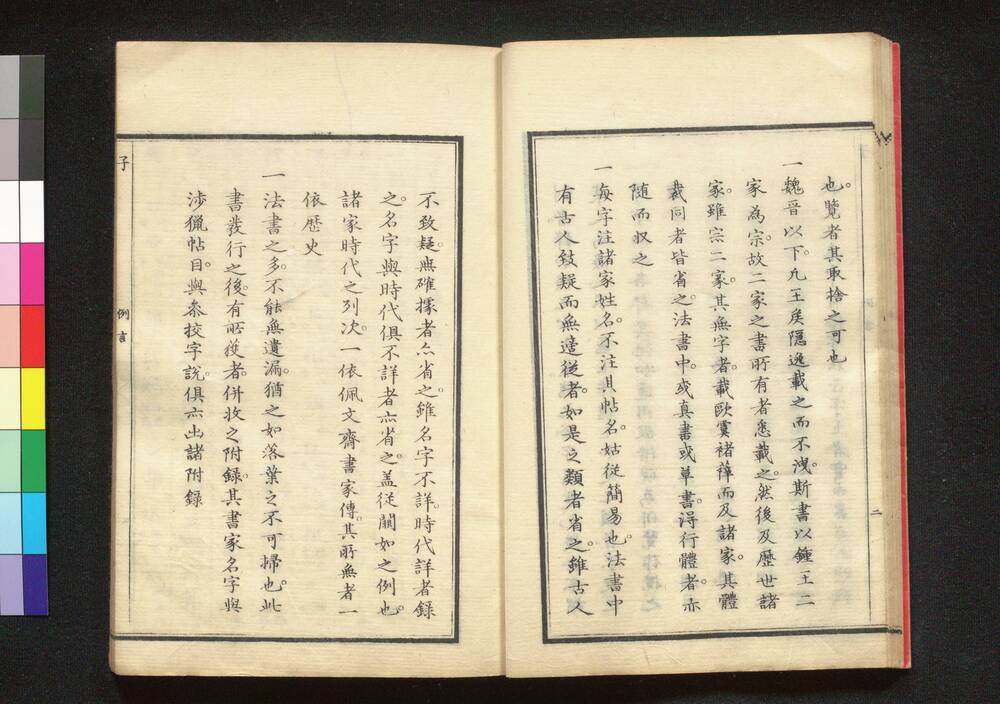 也。覽者其取捨之可也
一魏晉以下。凡王矦隱逸載之而不洩。斯書以鍾王二
家為宗。故二家之書所有者悉載之。然後及歷世諸
家。雖宗二家。其無字者。載歐虞褚薛而及諸家。其體
裁同者皆省之。法書中。或真書或草書。淂行體者。亦
隨而収之
一每字注諸家姓名。不注其帖名。姑従簡易也。法書中
有古人致疑而無適従者。如是之類者省之。雖古人
二
不致疑。無確據者亦省之。雖名字不詳。時代詳者録
之。名字與時代俱不詳者亦省之。盖従闕如之例也。
諸家時代之列次。一依佩文齋書家傳。其所無者一
依歷史
一法書之多。不能無遺漏。猶之如落葉之不可掃也。此
書發行之後。有所獲者。併收之附録。其書家名字與
涉獵帖目。與參挍字說。俱亦出諸附録
子
例言